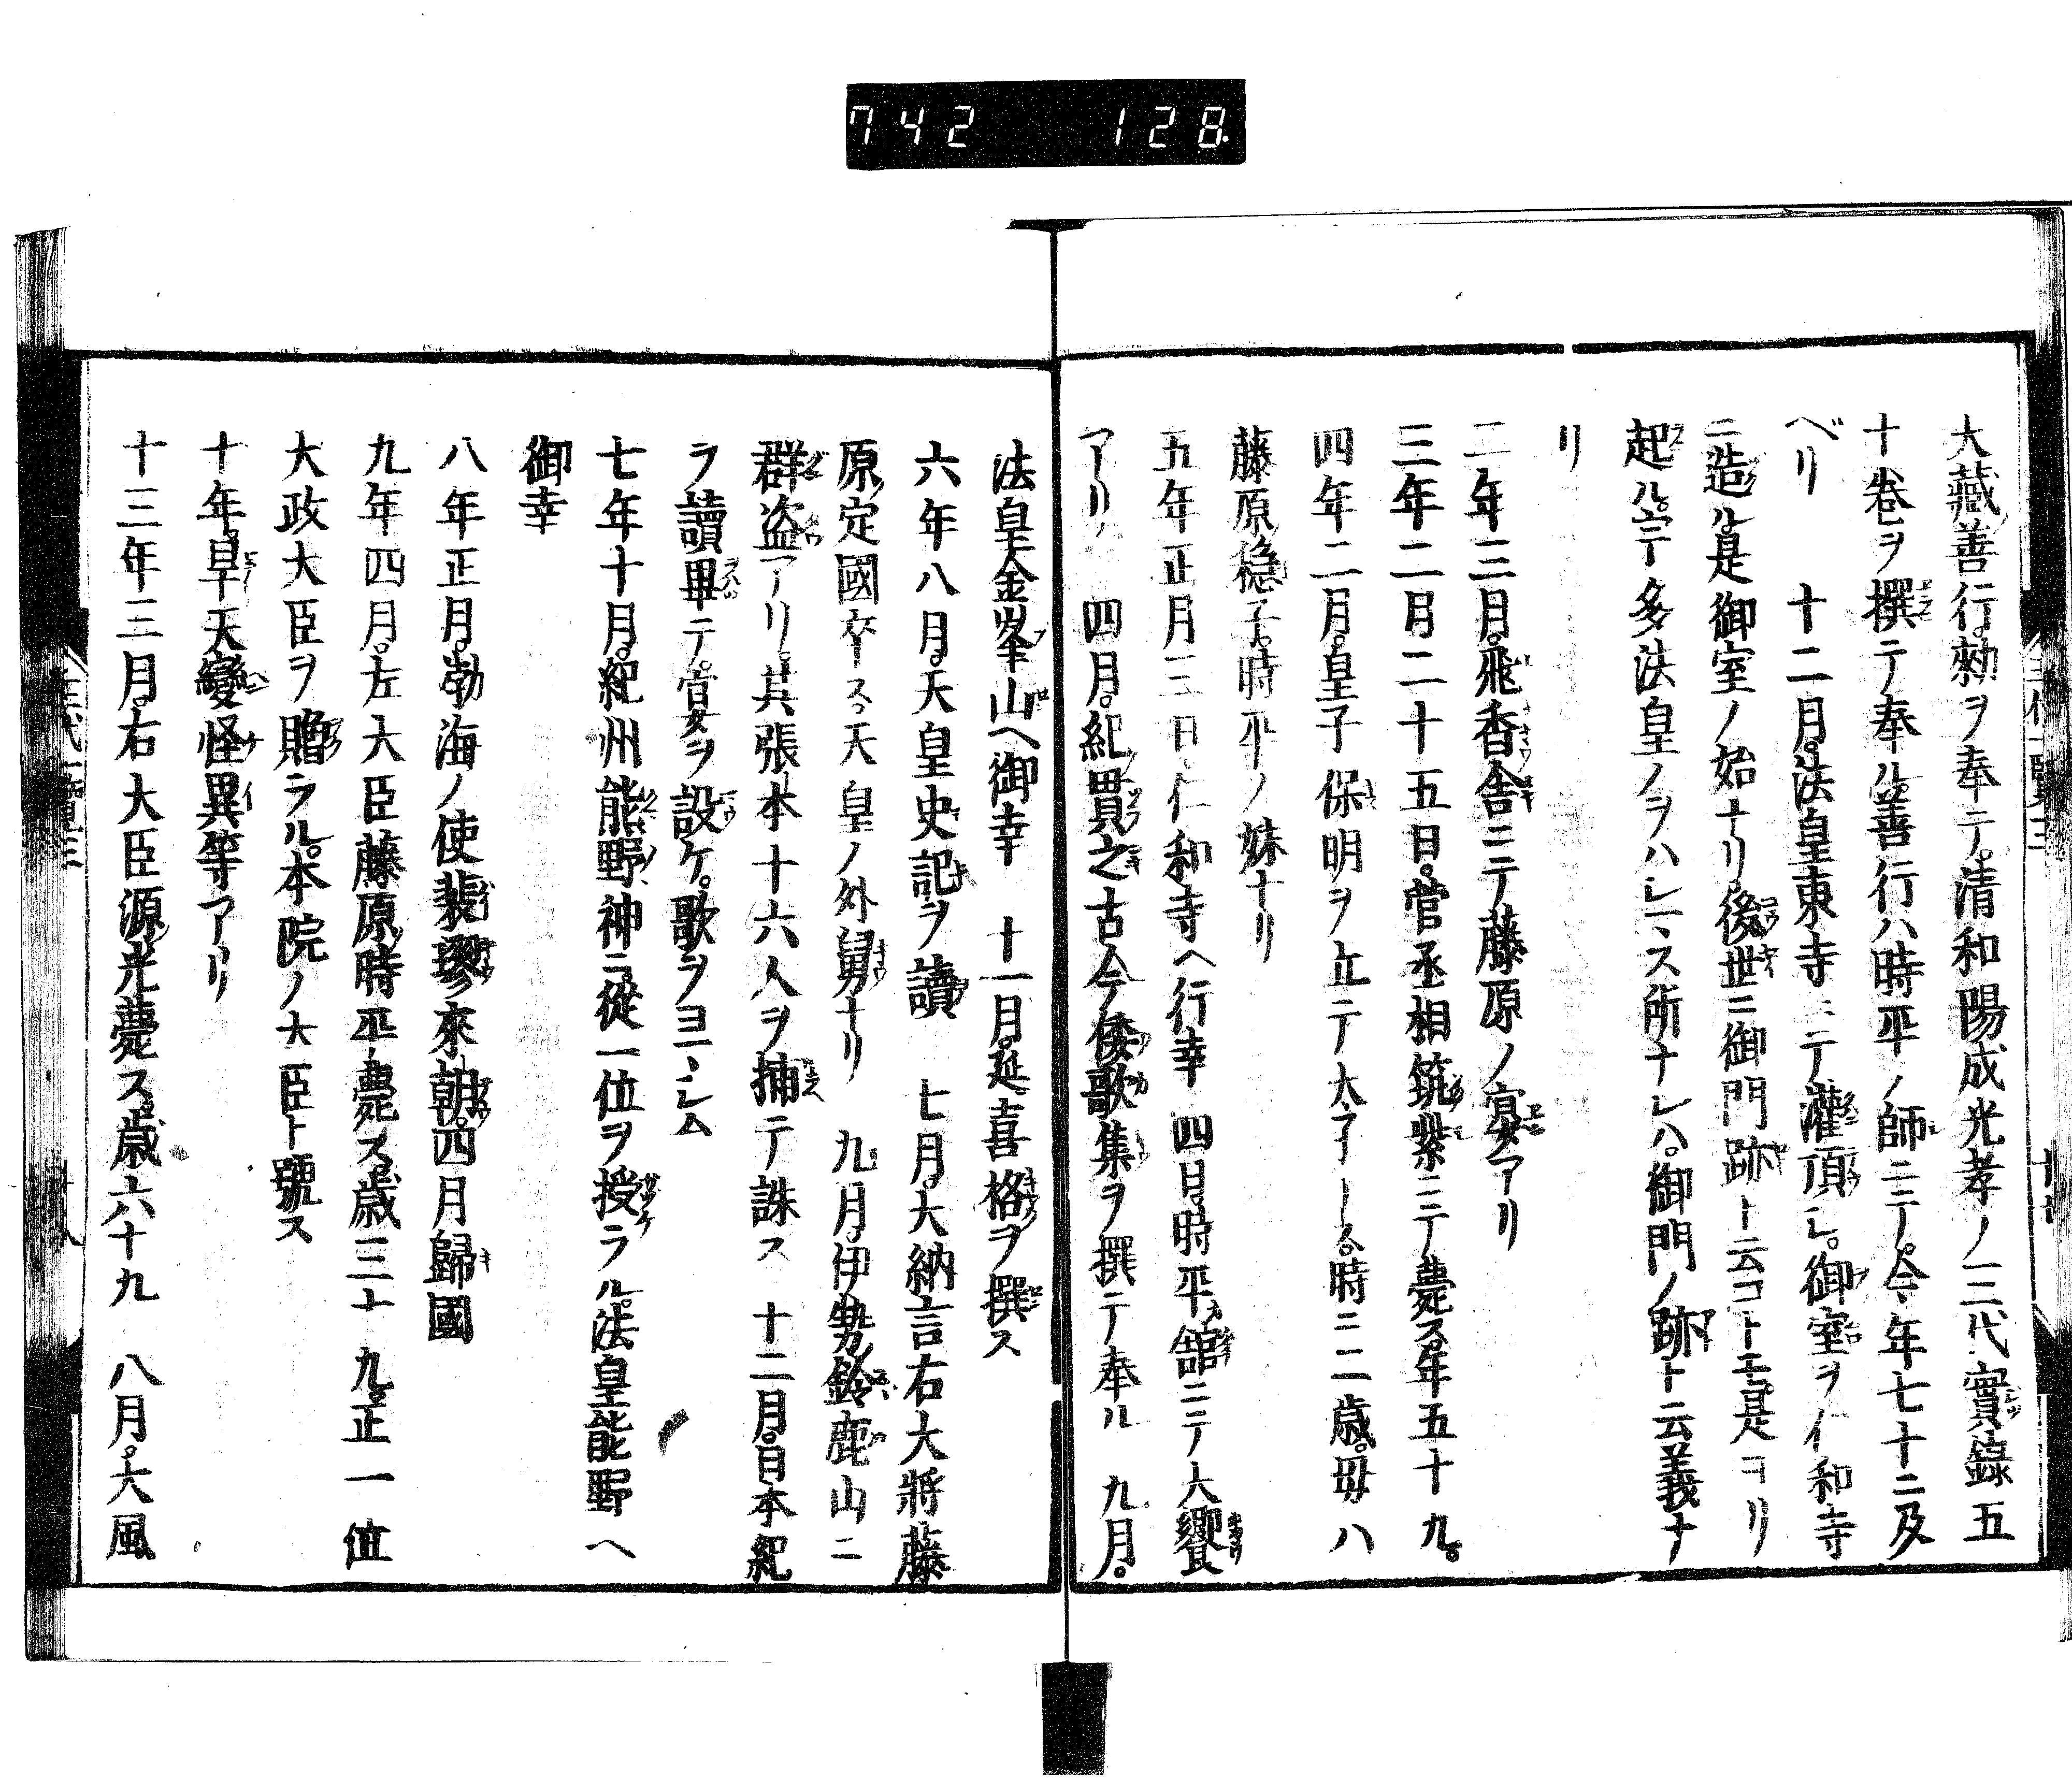 742 128
大藏善行。勅ヲ奉テ。清和陽成光孝ノ三代實錄五
十卷ヲ撰テ奉ル。善行ハ時平ノ師ニテ。今年七十ニ及
ベリ 十二月。法皇東寺ニテ灌頂シ。御室ヲ仁和寺
ニ造ル。是御室ノ始ナリ。後世ニ御門跡ト云コトモ是ヨリ
起ル。宇多法皇ノヲハシマス所ナレハ。御門ノ跡ト云義ナ
リ
二年三月。飛香舍ニテ藤原ノ宴アリ
三年二月二十五日。菅丞相筑紫ニテ薨ス。年五十九。
四年二月。皇子保明ヲ立テ太子トス。時ニ二歳。母ハ
藤原穩子。時平ノ妹ナリ
五年正月三日。仁和寺ヘ行幸 四日。時平館ニテ大饗
アリ 四月。紀貫之古今倭歌集ヲ撰テ奉ル 九月。
法皇金峯山ヘ御幸 十一月。延喜格ヲ撰ス
六年八月。天皇史記ヲ讀 七月。大納言右大將藤
原定國卒ス。天皇ノ外舅ナリ 九月。伊勢鈴鹿山ニ
群盗アリ。其張本十六人ヲ捕テ誅ス 十二月。日本紀
ヲ讀畢テ。宴ヲ設ケ。歌ヲヨマシム
七年十月。紀州能野神ニ。從一位ヲ授ラル。法皇能野ヘ
御幸
八年正月。勃海ノ使裴璆來朝。四月歸國
九年四月。左大臣藤原時平薨ス。歳三十九。正一位
大政大臣ヲ贈ラル。本院ノ大臣ト號ス
十年。旱天變怪異等アリ
十三年三月。右大臣源光薨ス。歳六十九 八月。大風